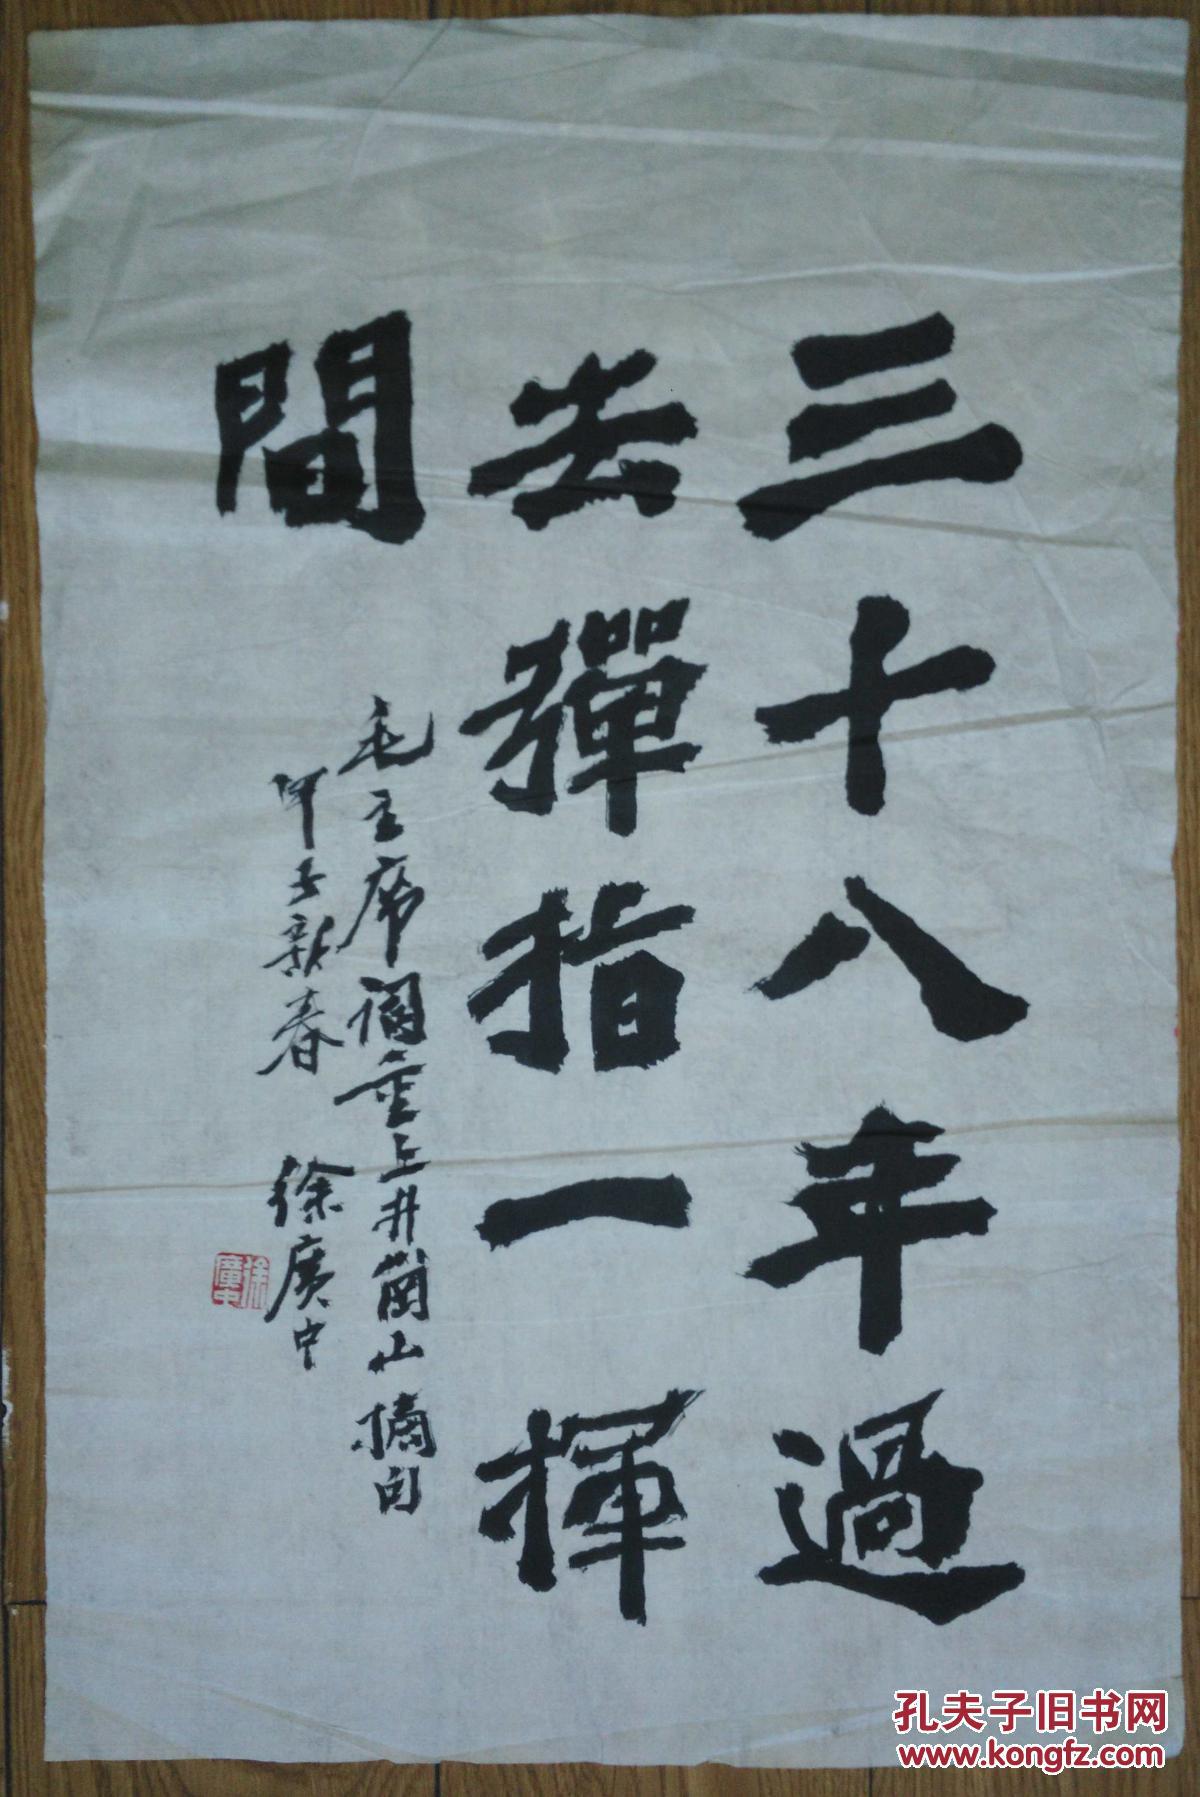 三十八年過
去彈指一揮
間
毛主席词重上井岡山摘句
甲子新春 徐廣中
徐廣中
孔夫子旧书网
www.kongfz.com